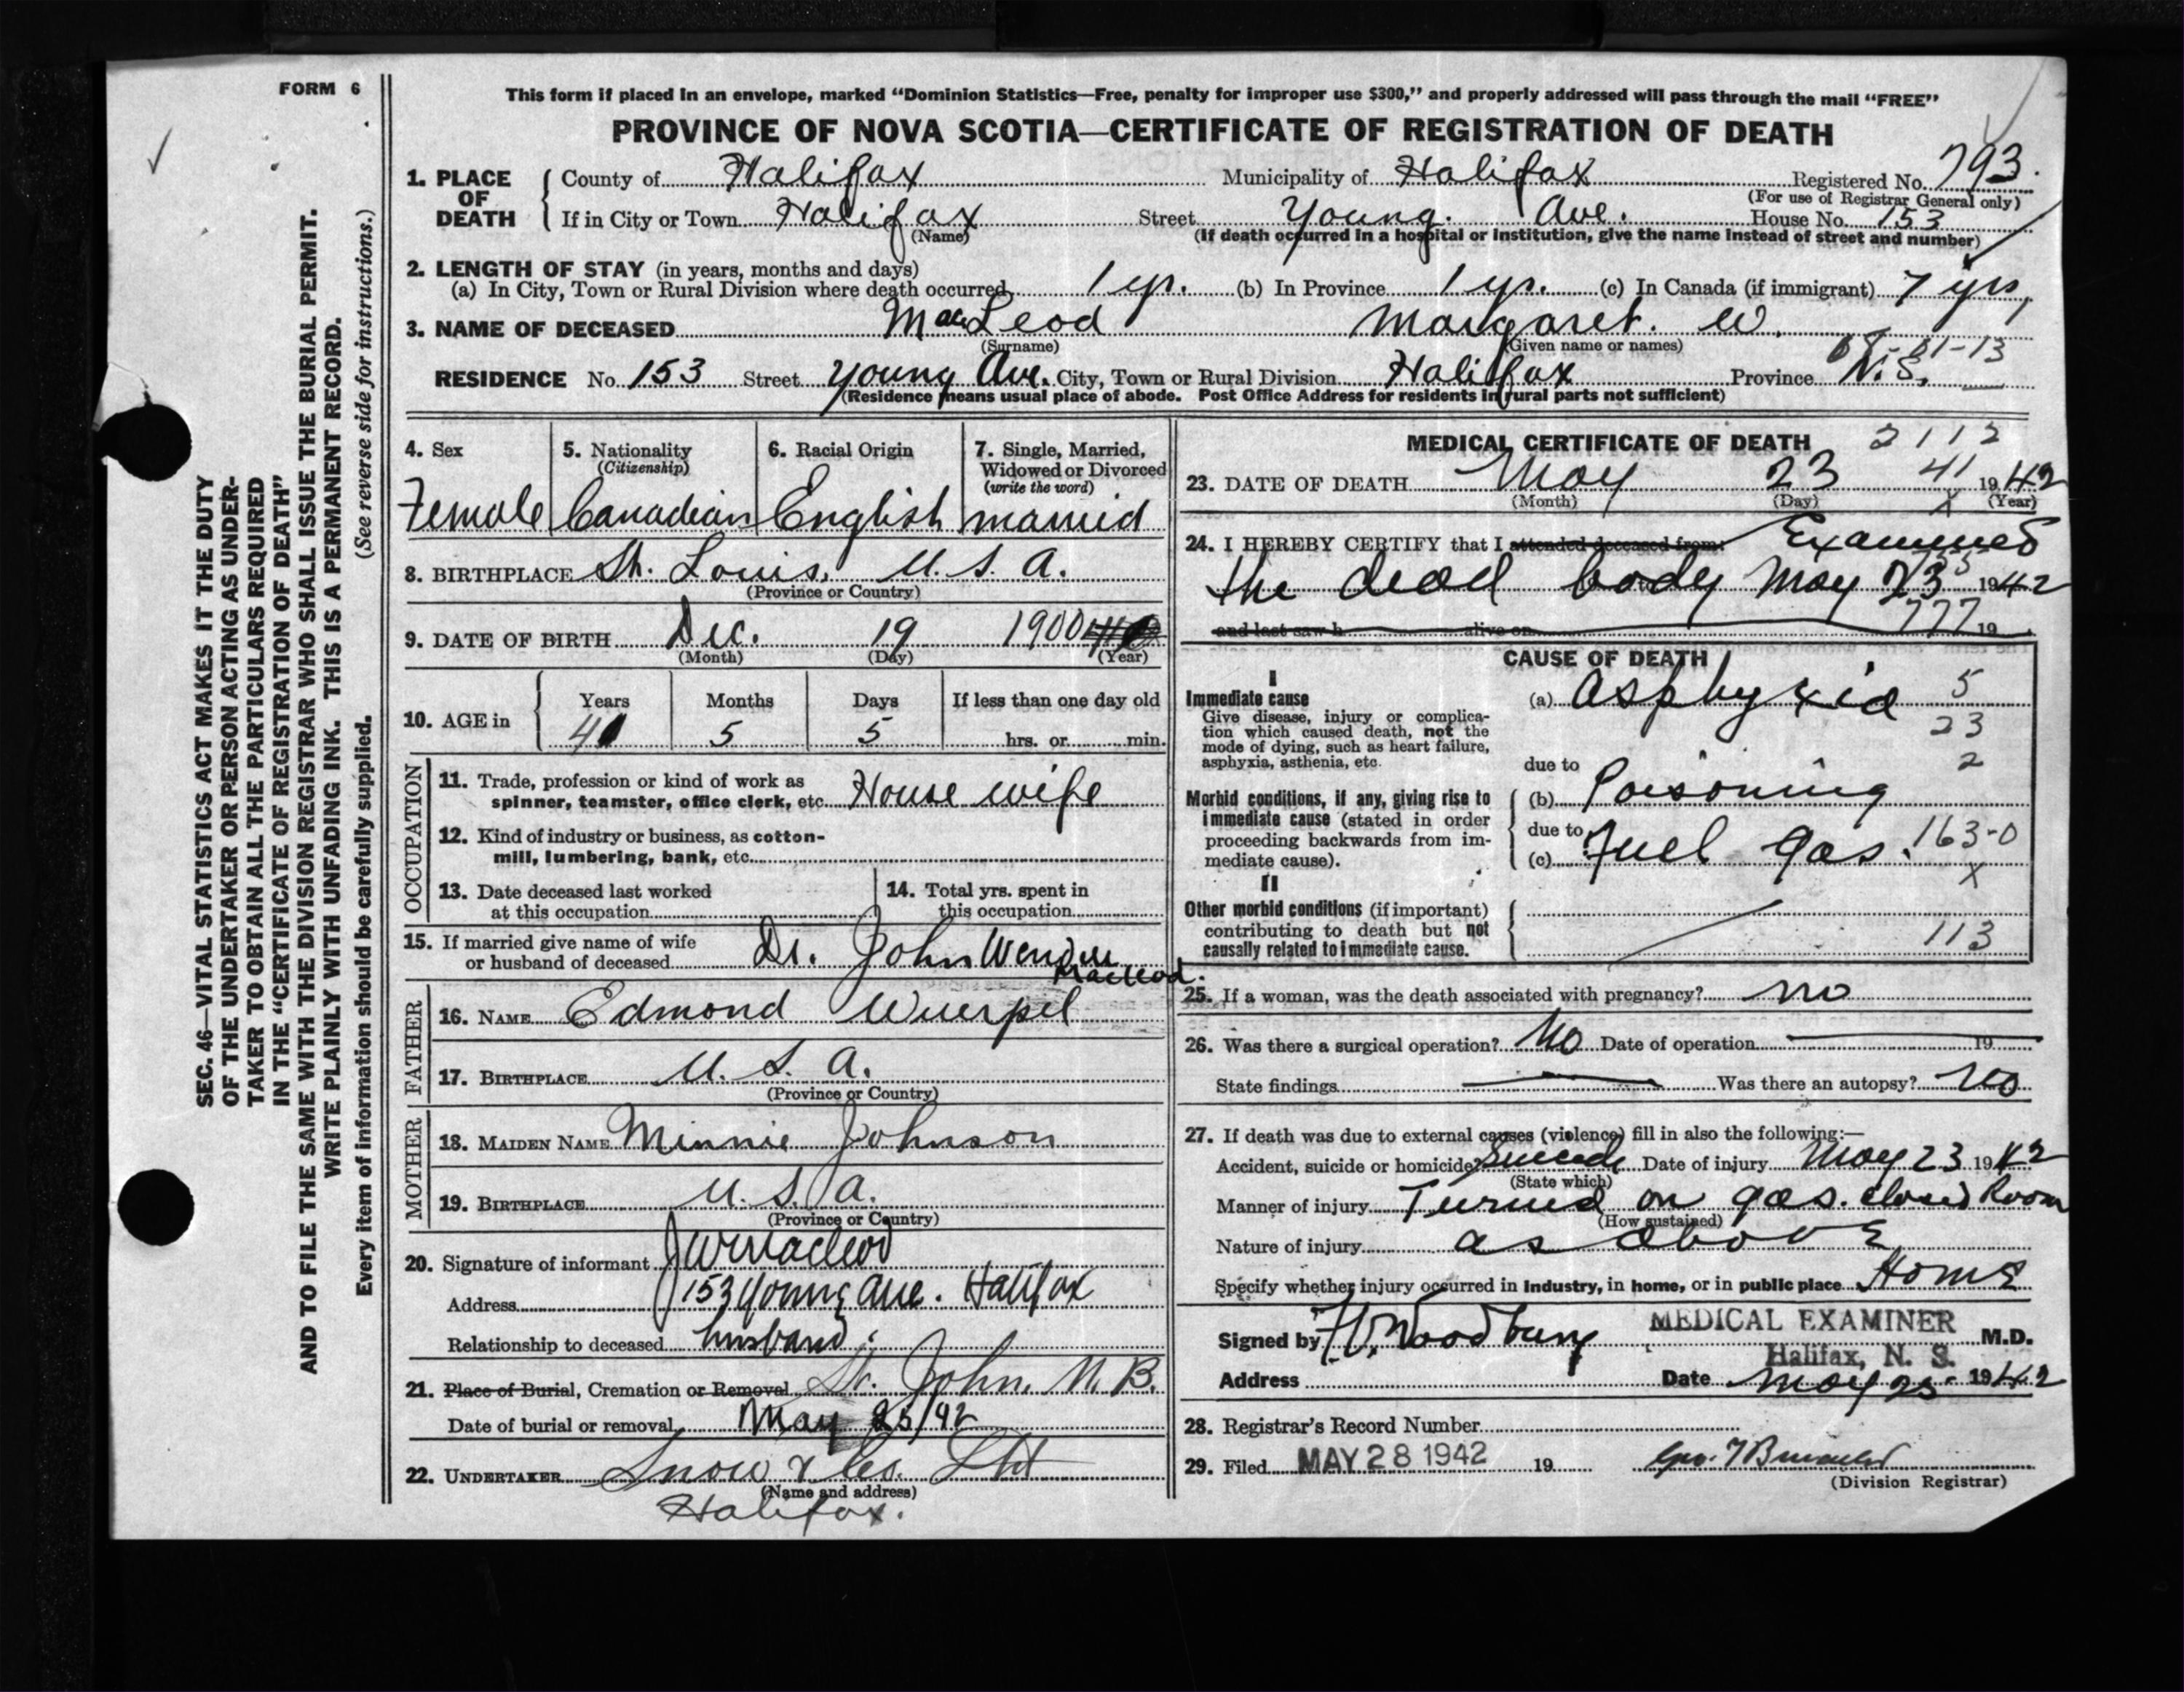 FORM 6
This form if placed in an envelope, marked “Dominion Statistics—Free, penalty for improper use $300,” and properly addressed will pass through the mail “FREE”
PROVINCE OF NOVA SCOTIA—CERTIFICATE OF REGISTRATION OF DEATH
1. PLACE OF DEATH
County of Halifax Municipality of Halifax Registered No. 793.
(For use of Registrar General only)
If in City or Town Halifax Street Young. Ave. House No. 153
(Name) (If death occurred in a hospital or institution, give the name instead of street and number)
2. LENGTH OF STAY (in years, months and days)
(a) In City, Town or Rural Division where death occurred 1 yr. (b) In Province 1 yr. (c) In Canada (if immigrant) 7 yrs,
3. NAME OF DECEASED MacLeod Margaret. W.
(Surname) (Given name or names)
01-13
RESIDENCE No. 153 Street Young Ave. City, Town or Rural Division Halifax Province N.S.
(Residence means usual place of abode. Post Office Address for residents in rural parts not sufficient)
4. Sex 5. Nationality 6. Racial Origin 7. Single, Married,
(Citizenship) Widowed or Divorced
(write the word)
Female Canadian English married
8. BIRTHPLACE St. Louis, U.S.A.
(Province or Country)
9. DATE OF BIRTH Dec. 19 1900
(Month) (Day) (Year)
Years Months Days If less than one day old
10. AGE in 41 5 5 hrs. or min.
OCCUPATION
11. Trade, profession or kind of work as
spinner, teamster, office clerk, etc. House wife
12. Kind of industry or business, as cotton-
mill, lumbering, bank, etc.
13. Date deceased last worked 14. Total yrs. spent in
at this occupation this occupation
15. If married give name of wife
or husband of deceased Dr. John Wendell
MacLeod.
FATHER
16. NAME Edmond Wuerpel
17. BIRTHPLACE U.S.A.
(Province or Country)
MOTHER
18. MAIDEN NAME Minnie Johnson
19. BIRTHPLACE U.S.A.
(Province or Country)
20. Signature of informant JWMacLeod
Address 153 Young Ave. Halifax
Relationship to deceased husband.
21. Place of Burial, Cremation or Removal St. John, N.B.
Date of burial or removal May 25/42
22. UNDERTAKER Snow & Co. Ltd
(Name and address)
Halifax.
MEDICAL CERTIFICATE OF DEATH 2112
23. DATE OF DEATH May 23 41 1942
(Month) (Day) (Year)
X
24. I HEREBY CERTIFY that I attended deceased from: Examined
the dead body May 23 1942
and last saw h alive on 777 19
CAUSE OF DEATH
I
Immediate cause (a) Asphyxia 5
Give disease, injury or complica-
tion which caused death, not the 23
mode of dying, such as heart failure,
asphyxia, asthenia, etc. due to 2
Morbid conditions, if any, giving rise to (b) Poisoning
immediate cause (stated in order due to
proceeding backwards from im- (c) Fuel gas. 163-0
mediate cause). X
II
Other morbid conditions (if important)
contributing to death but not 113
causally related to immediate cause.
25. If a woman, was the death associated with pregnancy? no
26. Was there a surgical operation? No Date of operation 19
State findings Was there an autopsy? no
27. If death was due to external causes (violence) fill in also the following:—
Accident, suicide or homicide? Suicide Date of injury May 23 1942
(State which)
Manner of injury Turned on gas. closed Room
(How sustained)
Nature of injury as above
Specify whether injury occurred in industry, in home, or in public place Home
MEDICAL EXAMINER
Signed by Woodbury M.D.
Halifax, N. S.
Address Date May 25 1942
28. Registrar's Record Number
29. Filed MAY 28 1942 19
(Division Registrar)
SEC. 46—VITAL STATISTICS ACT MAKES IT THE DUTY
OF THE UNDERTAKER OR PERSON ACTING AS UNDER-
TAKER TO OBTAIN ALL THE PARTICULARS REQUIRED
IN THE “CERTIFICATE OF REGISTRATION OF DEATH”
AND TO FILE THE SAME WITH THE DIVISION REGISTRAR WHO SHALL ISSUE THE BURIAL PERMIT.
WRITE PLAINLY WITH UNFADING INK. THIS IS A PERMANENT RECORD.
Every item of information should be carefully supplied. (See reverse side for instructions.)